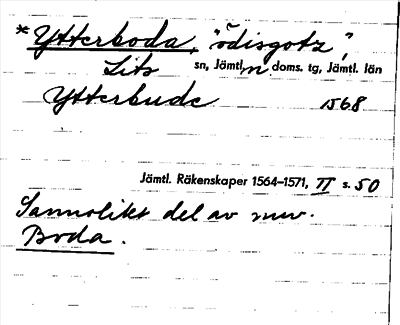 *Ytterboda, "ödisgotz",
Lits sn, Jämtl. n. doms. tg, Jämtl. län
Ytterbude 1568
Jämtl. Räkenskaper 1564–1571, II s. 50
Sannolikt del av nuv.
Boda.